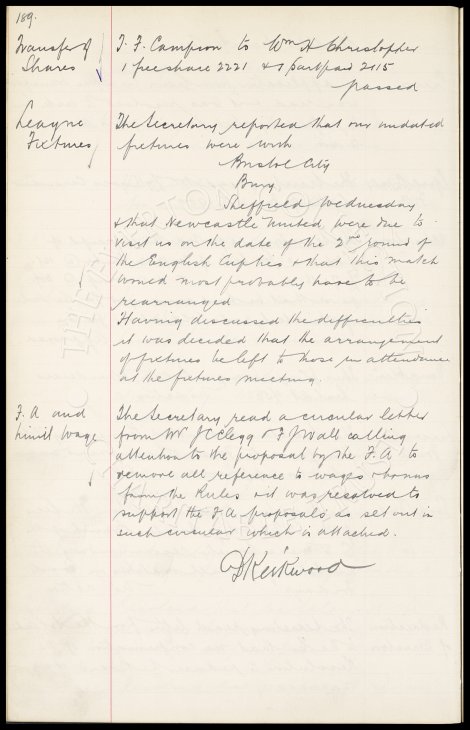 189.
Transfer of
Shares
T. F. Campson to Wm H Christopher
1 free share 2221 & 1 partpaid 2115
passed
League
Fixtures
The Secretary reported that our undated
fixtures were with
Bristol City
Bury
Sheffield Wednesday
& that Newcastle United were due to
visit us on the date of the 2nd round of
the English Cupties & that this match
would most probably have to be
rearranged
Having discussed the difficulties
it was decided that the arrangement
of fixtures be left to those in attendance
at the fixtures meeting.
F. A and
limit wage
The Secretary read a circular letter
from Mr J C Clegg & F J Wall calling
attention to the proposal by the F. A to
remove all reference to wages & bonus
from the Rules & it was resolved to
support the F A proposals as set out in
such circular which is attached.
D Kirkwood